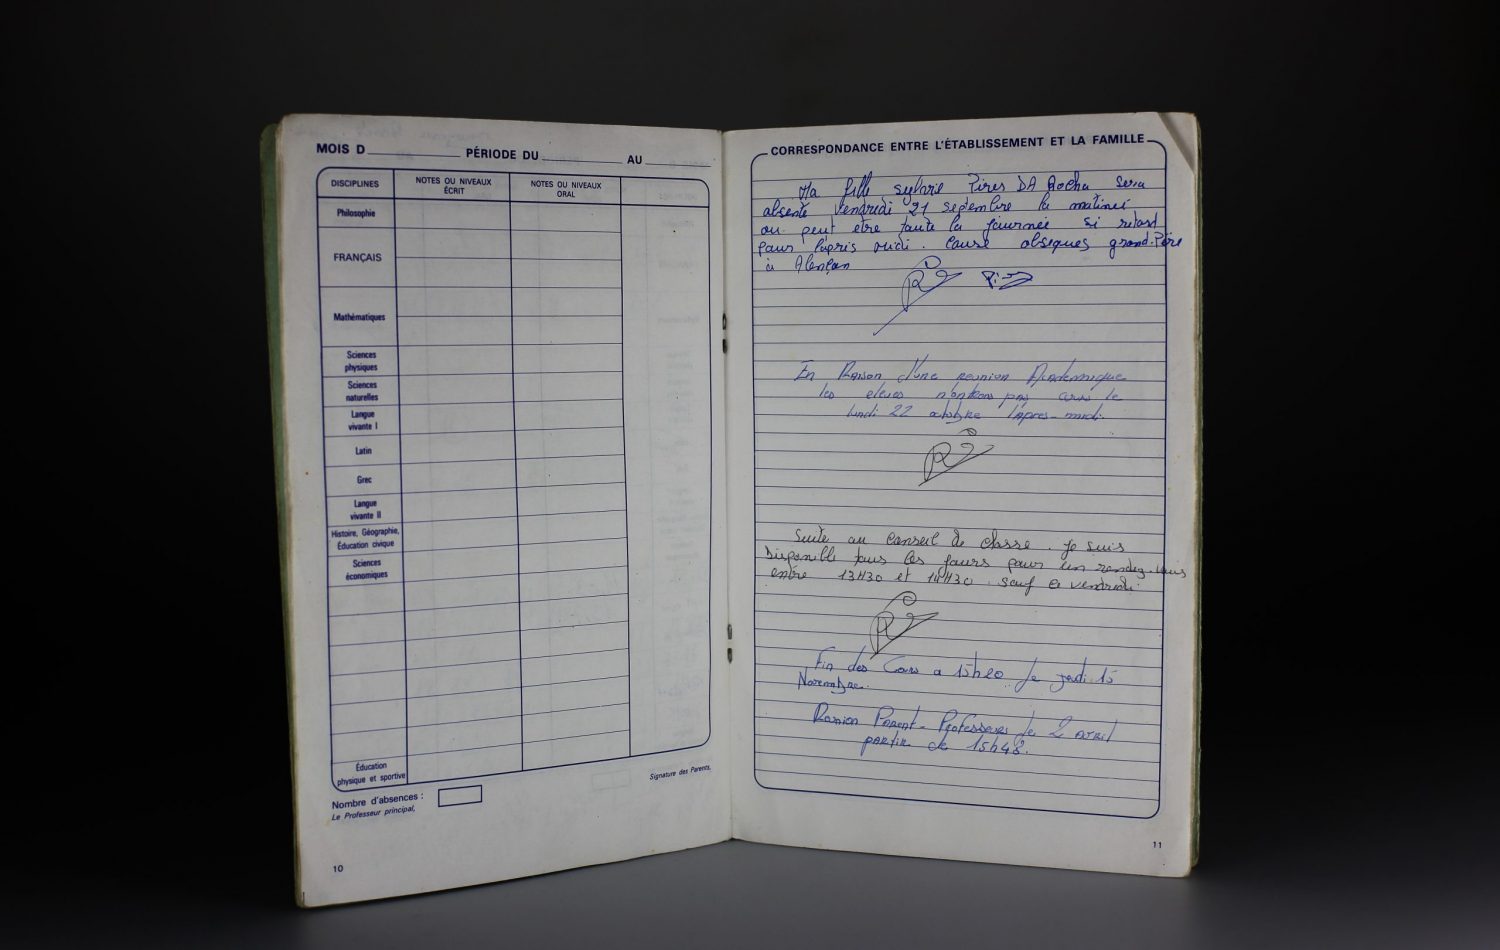 MOIS D
PÉRIODE DU
AU
DISCIPLINES
NOTES OU NIVEAUX
ÉCRIT
NOTES OU NIVEAUX
ORAL
Philosophie
FRANÇAIS
Mathématiques
Sciences
physiques
Sciences
naturelles
Langue
vivante I
Latin
Grec
Langue
vivante II
Histoire, Géographie,
Éducation civique
Sciences
économiques
Éducation
physique et sportive
Nombre d'absences :
Le Professeur principal,
Signature des Parents,
10
CORRESPONDANCE ENTRE L'ÉTABLISSEMENT ET LA FAMILLE
Ma fille sylvie Pires DA Rocha sera
absente Vendredi 21 septembre la matineé
ou peut etre toute la journeé si retard
pour l'apris midi. Cause obseques grand-Père
à Alençon
En Raison d'une reunion Academique
les eleves n'ont pas cours le
lundi 22 octobre l'apres-midi.
Suite au conseil de classe. Je suis
Disponible tous les jours pour un rendez-vous
entre 13H30 et 14H30 sauf le vendredi
Fin des Cours a 15h20 le jeudi 15
Novembre.
Reunion Parent-Professeurs le 2 avril
partir de 15h45.
11